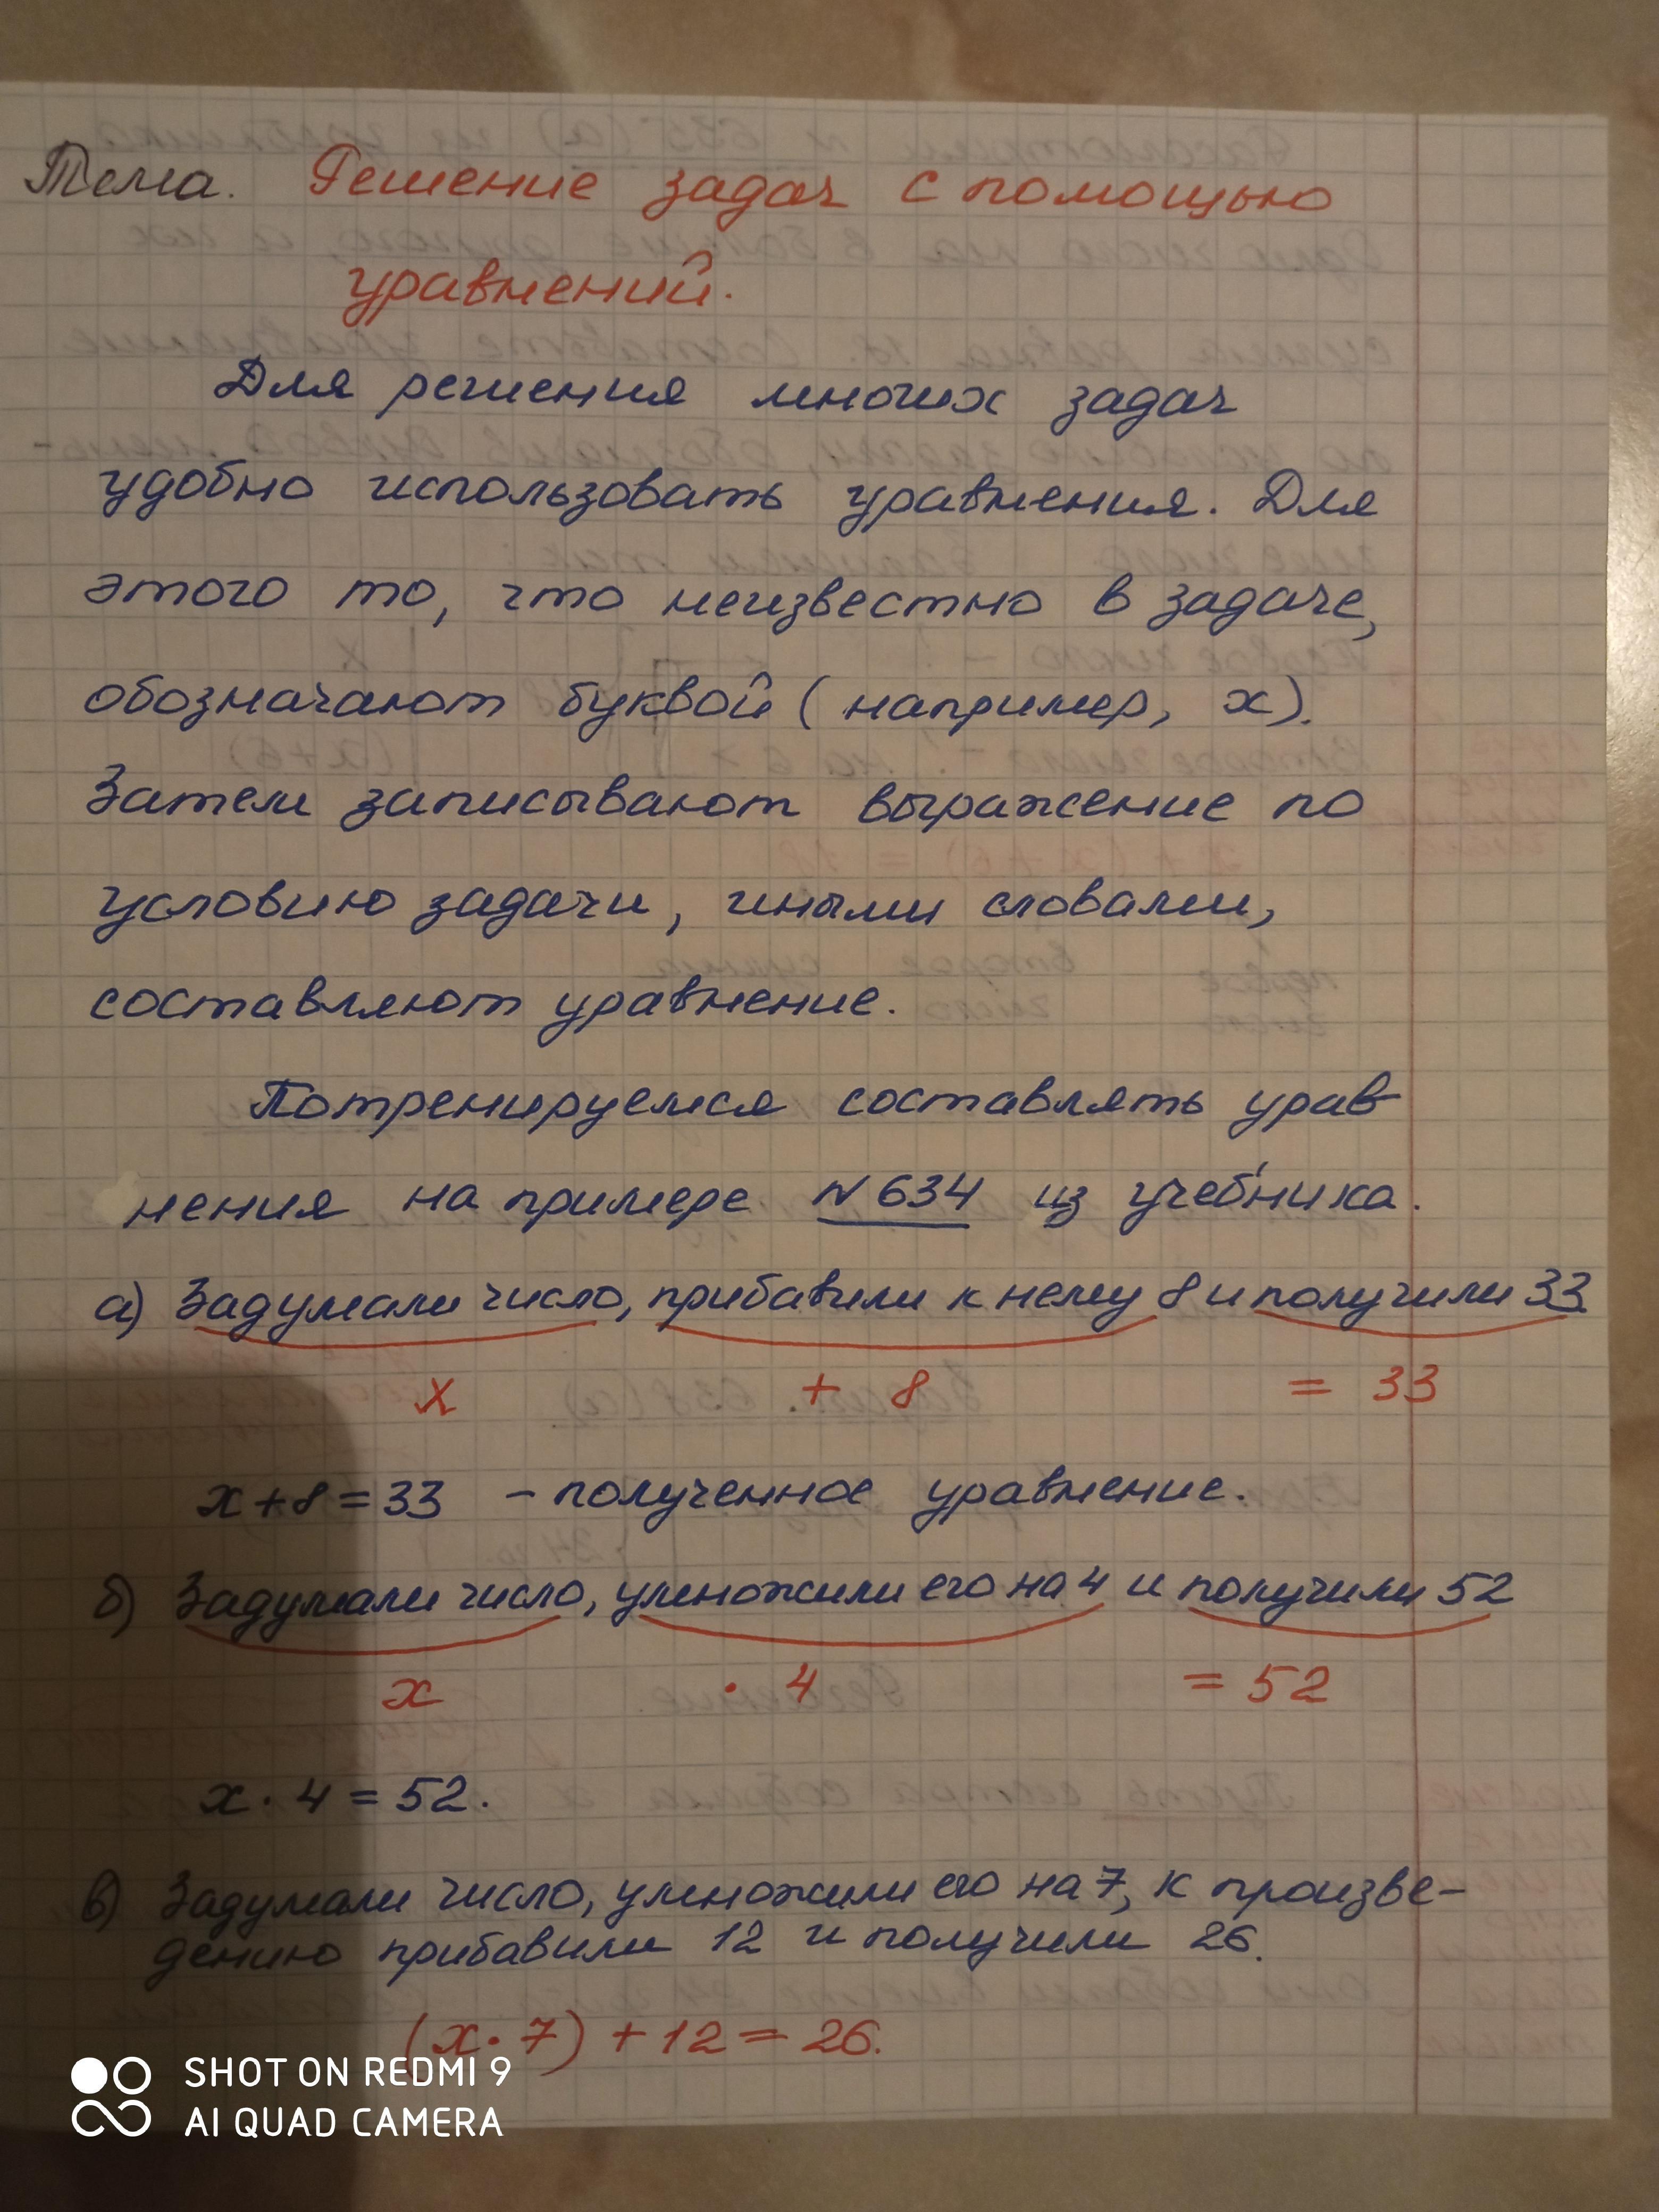 Тема. Решение задач с помощью
уравнений.
Для решения многих задач
удобно использовать уравнения. Для
этого то, что неизвестно в задаче,
обозначают буквой (например, х).
Затем записывают выражение по
условию задачи, иными словами,
составляют уравнение.
Потренируемся составлять урав-
нения на примере №634 из учебника.
а) Задумали число, прибавили к нему 8 и получили 33
х + 8 = 33
х+8=33 – полученное уравнение.
б) Задумали число, умножили его на 4 и получили 52
х · 4 = 52
х · 4 = 52.
в) Задумали число, умножили его на 7, к произве-
дению прибавили 12 и получили 26.
(х · 7) + 12 = 26.
SHOT ON REDMI 9
AI QUAD CAMERA